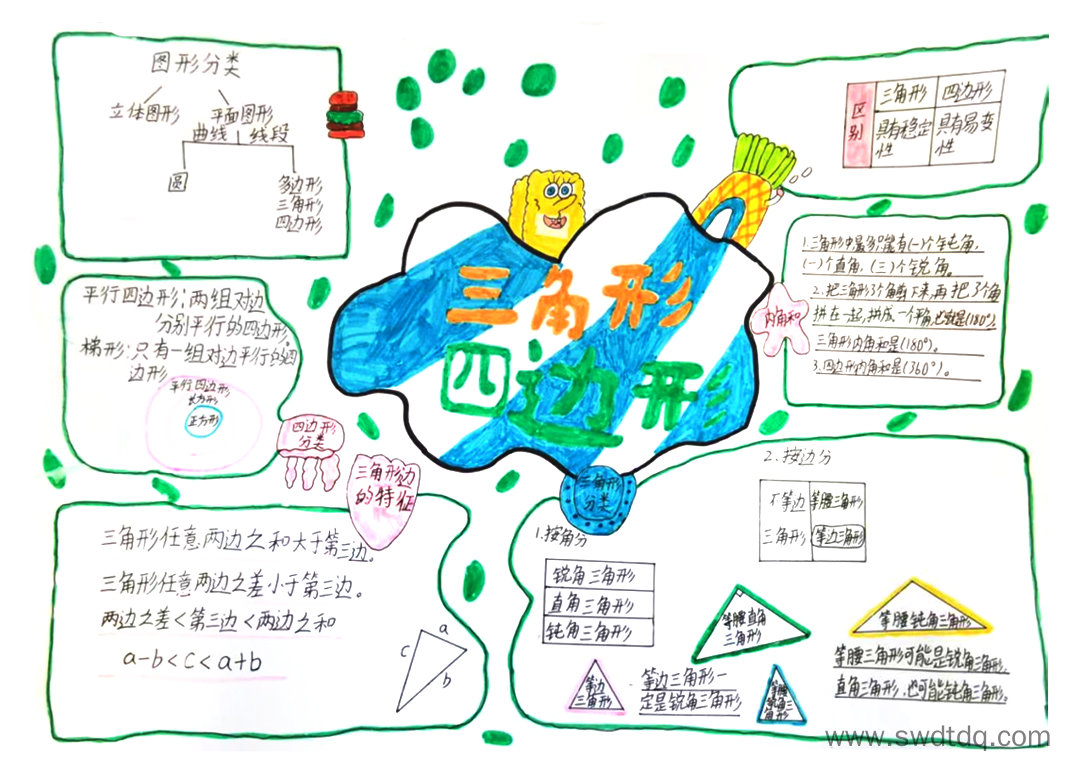 图形分类
立体图形 平面图形
曲线 线段
圆
多边形
三角形
四边形
区别
三角形 四边形
具有稳定性 具有易变性
三角形
四边形
平行四边形：两组对边
分别平行的四边形
梯形：只有一组对边平行的四
边形
平行四边形
长方形
正方形
四边形
分类
内角和
1.三角形中最多只能有(一)个钝角，
(一)个直角，(三)个锐角。
2.把三角形3个角剪下来，再把3个角
拼在一起，拼成一个平角，也就是(180°)。
三角形内角和是(180°)。
3.四边形内角和是(360°)。
三角形边
的特征
三角形任意两边之和大于第三边。
三角形任意两边之差小于第三边。
两边之差<第三边<两边之和
a-b<c<a+b
a
c
b
三角形
分类
1.按角分
锐角三角形
直角三角形
钝角三角形
2.按边分
不等边 等腰三角形
三角形 等边三角形
等腰直角
三角形
等腰钝角三角形
等边
三角形
等边三角形一
定是锐角三角形
等腰
锐角三
角形
等腰三角形可能是锐角三角形，
直角三角形，也可能钝角三角形。
www.swdtdq.com